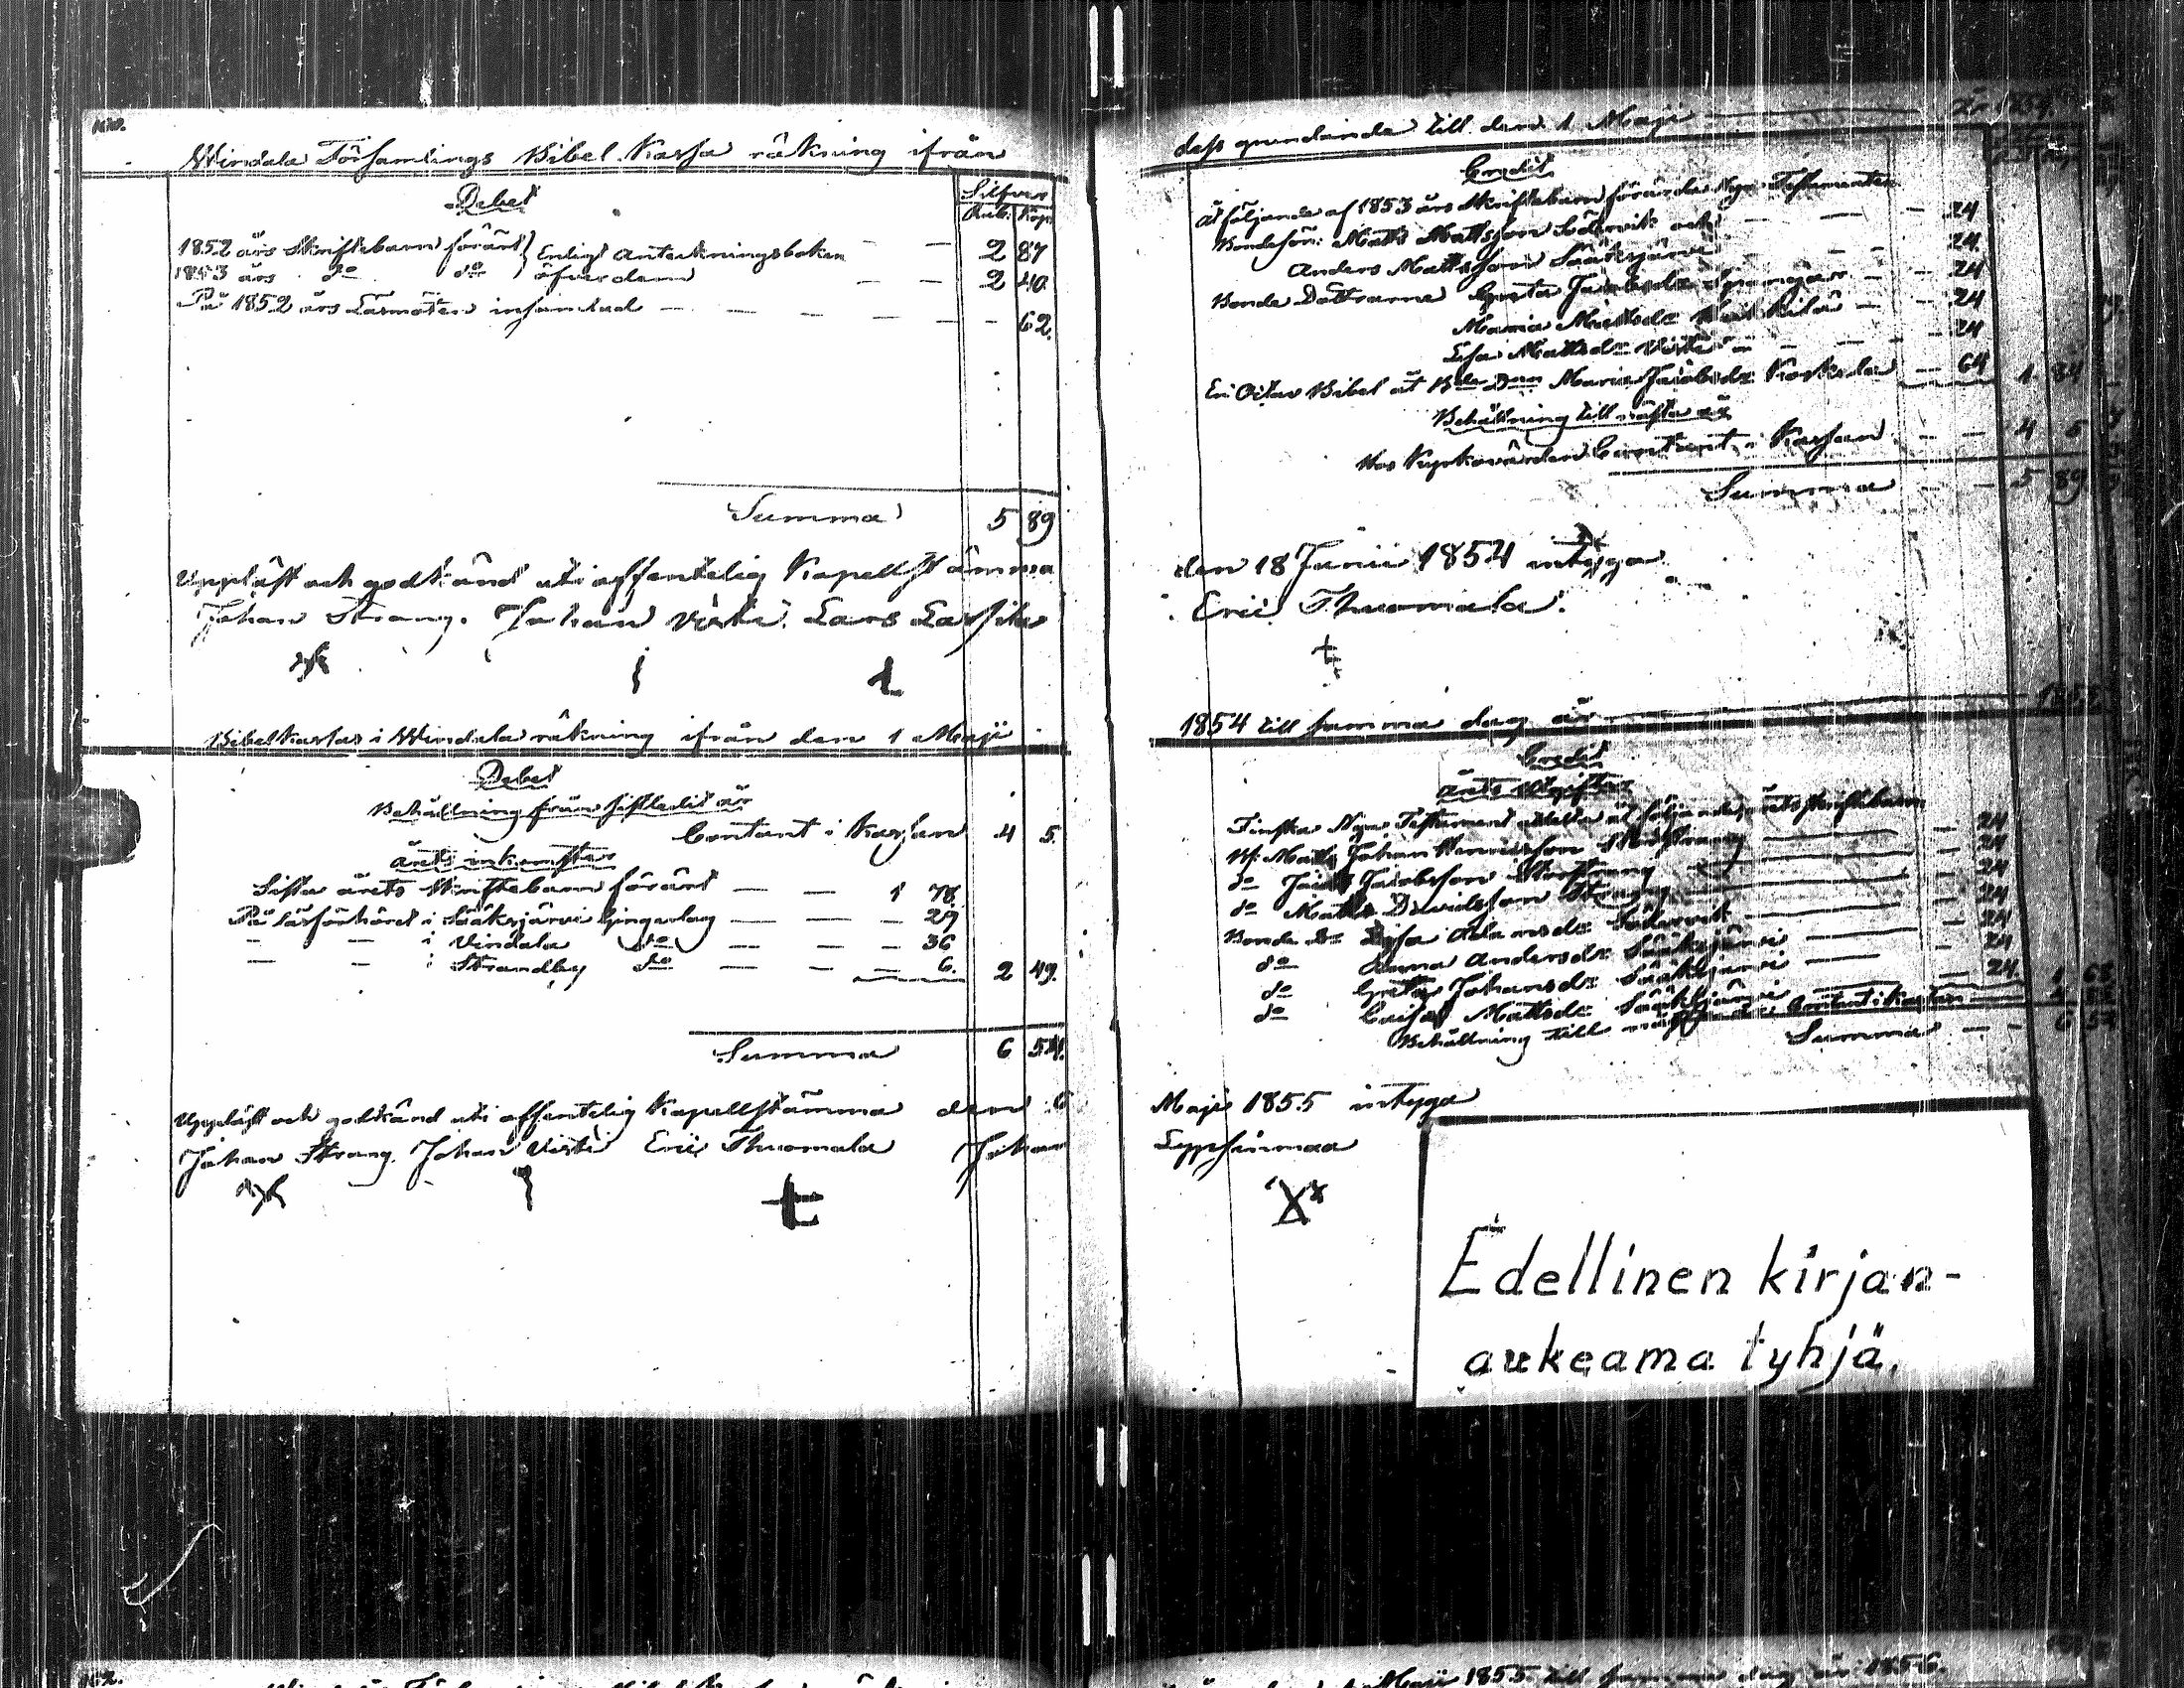 Windala Församlings Bibel Kassa räkning ifrån
Debet
Silfver
Rub. Kop.
1852 års Skriftebarn förärt } Enligt Anteckningsboken — — 2 87
1853 års do do } öfver dem — — 2 40.
På 1852 års Läsmöten insamlad — — — — — — 62.
Summa 5 89
Uppläst och godkänd uti offentelig Kapellstämma
Johan Strang. Johan Virki. Lars
Bibel Kassas i Windala räkning ifrån den 1 Maji
Debet
Behållning från sistledit år
Contant i Kassan 4 5.
årets inkomster
Sista årets Skriftebarn förärt — — 1 78.
På Läsförhöret i Sääksjärvi Gingerlag — — — 29
— — i Vindala do — — — 36
— — i Strandby do — — — 6. 2 49.
Summa 6 54.
Uppläst och godkänd uti offentelig Kapellstämma den 6
Johan Strang. Johan Virki Eric Thuomala Johan
dess grundande till den 1 Maji — År 1854
Credit
Åt följande af 1853 års Skriftebarn förärade Nya Testamenter
Bondesön: Matts Mattsson Södervik och — — — 24
Anders Mattsson Sääksjärvi — — 24.
Bonde Döttrarna Greta Jacobsdr — 24
Maria Mattsdr — 24
Lisa Mattsdr Virki — — 24
En Octav Bibel åt Maria Jacobsdr Koskela — 64 1 84
Behållning till nästa år
Hos Kyrkovärden Contant i Kassan — — 4 5
Summa — — 5 89
den 18 Junii 1854 intyga
Eric Thuomala.
1854 till samma dag år — 1855
Credit
årets utgifter
Finska Nya Testament utdelta åt följande årets skriftebarn
Johan — 24
do Jacob Jacobsson — 24
do Matts Davidsson Strang — 24
Bonde Dr Lisa Adamsdr Södervik — 24
do Anna Andersdr Sääksjärvi — 24
do Greta Johansdr Sääksjärvi — 24
do Caisa Mattsdr Sääksjärvi — 24. 1 68
Behållning till Contant i Kassan
Summa — — 6 54
Maji 1855 intyga
Lyppsinmaa
Edellinen kirjan-
aukeama tyhjä.
Maji 1855 till samma dag år 1856.